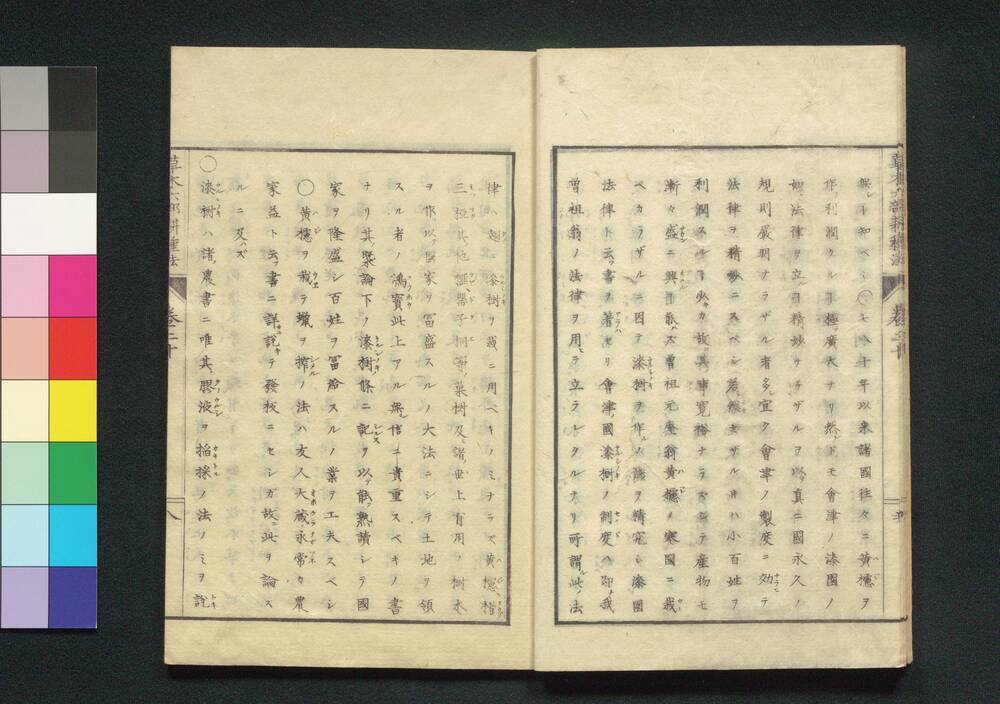 無レト知ベシ〇七八十年以来諸國往々ニ黄櫨ヲ
作テ利潤タルヿ極テ廣大ナリ然レドモ會津ノ漆園ノ
如ク法律ヲ立ルヿ精妙ナラザルヲ以テ真ニ國永久ノ
規則嚴明ナラザル者多シ宜ク會津ノ製度ニ効テ
法律ヲ精妙ニスベシ若然セザルヰハ小百姓ヲ
利潤スルヿ少カ故ニ其事寛裕ナラズシテ産物モ
漸々盛ニ興ヿ能ハズ曽祖元庵翁黄櫨ノ寒國ニ栽
ベカラザルニ因テ漆樹ヲ作ルノ議ヲ精究シ漆園
法律ト云フ書ヲ著セリ會津國漆樹ノ制度ハ即チ我
曽祖翁ノ法律ヲ用テ立ラレタルナリ所謂此ノ法
律ハ漆樹ヲ栽ニ用ベキノミナラズ黄櫨楮
三椏其他罌子桐等ノ菓樹及ビ諸世上有用ノ樹木
ヲ作リ以テ國家ヲ富盛スルノ大法ニシテ土地ヲ領
スル者ノ鴻寶此上アルヿ無シ信ニ貴重スベキノ書
ナリ其聚論下ノ漆樹條ニ記ス以テ能ク熟讀シテ國
家ヲ隆盛シ百姓ヲ冨給スルノ業ヲ工夫スベシ
〇黄櫨ヲ栽テ蠟ヲ搾ノ法ハ友人大蔵永常カ農
家益ト云フ書ニ詳ニ説キテ發梓ニセシガ故ニ此ヲ論ス
ルニ及バズ
〇漆樹ハ諸農書ニ唯其膠液ヲ搯採ノ法ノミヲ說
草木六部耕種法
卷之二十
八